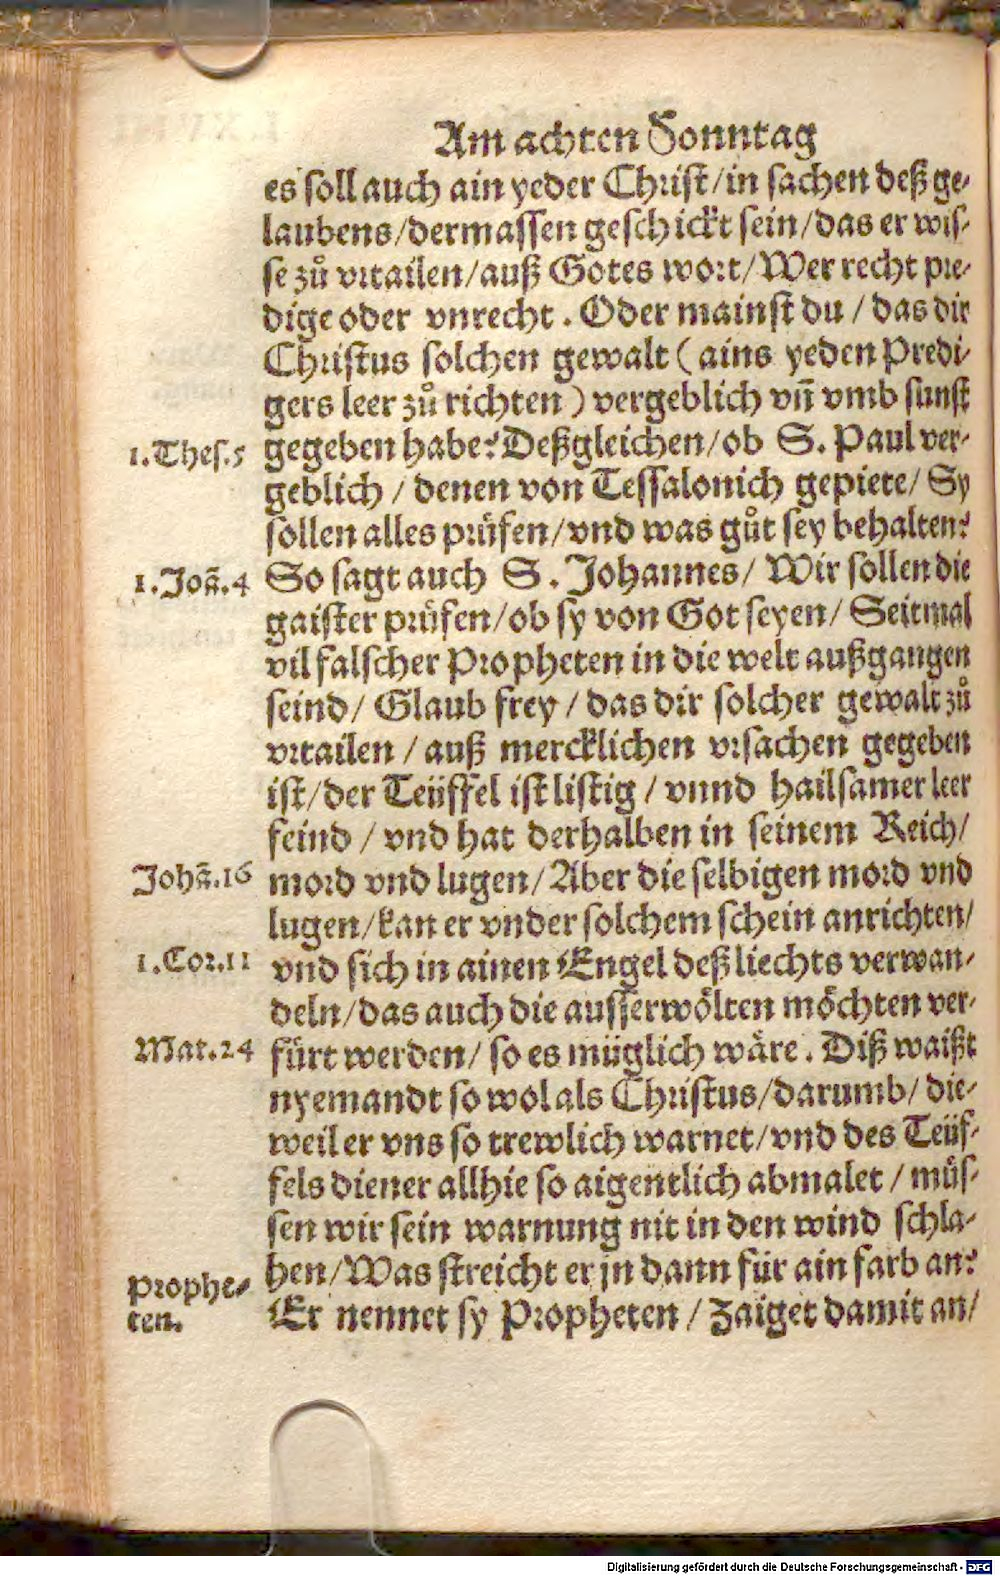 Am achten Sonntag
es soll auch ain yeder Christ/in sachen deß ge-
laubens/dermassen geschickt sein/das er wis-
se zů vrtailen/auß Gotes wort/Wer recht pre-
dige oder vnrecht. Oder mainst du/das dir
Christus solchen gewalt (ains yeden Predi-
gers leer zů richten) vergeblich vñ vmb sunst
1.Thes.5 gegeben habe? Deßgleichen/ob S. Paul ver-
geblich/denen von Tessalonich gepiete/Sy
sollen alles prüfen/vnd was gůt sey behalten?
1.Joñ.4 So sagt auch S. Johannes/Wir sollen die
gaister prüfen/ob sy von Got seyen/Seitmal
vil falscher Propheten in die welt außgangen
seind/Glaub frey/das dir solcher gewalt zů
vrtailen/auß mercklichen vrsachen gegeben
ist/der Teüffel ist listig/vnnd hailsamer leer
feind/vnd hat derhalben in seinem Reich/
Johã.16 mord vnd lugen/Aber die selbigen mord vnd
lugen/kan er vnder solchem schein anrichten/
1.Cor.11 vnd sich in ainen Engel deß liechts verwan-
deln/das auch die ausserwölten möchten ver-
Mat.24 fürt werden/so es müglich wäre. Diß waißt
nyemandt so wol als Christus/darumb/die-
weil er vns so trewlich warnet/vnd des Teüf-
fels diener allhie so aigentlich abmalet/müs-
sen wir sein warnung nit in den wind schla-
hen/Was streicht er jn dann für ain farb an?
Prophe-
ten.
Er nennet sy Propheten/Zaiget damit an/
Digitalisierung gefördert durch die Deutsche Forschungsgemeinschaft - DFG